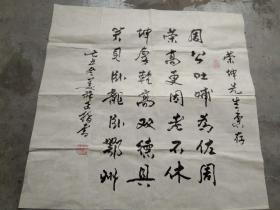 荣坤先生惠存
周公吐哺为佐周
荣高更图老不休
坤厚乾高双德具
笑见卧龙卧鄂州
七五叟书